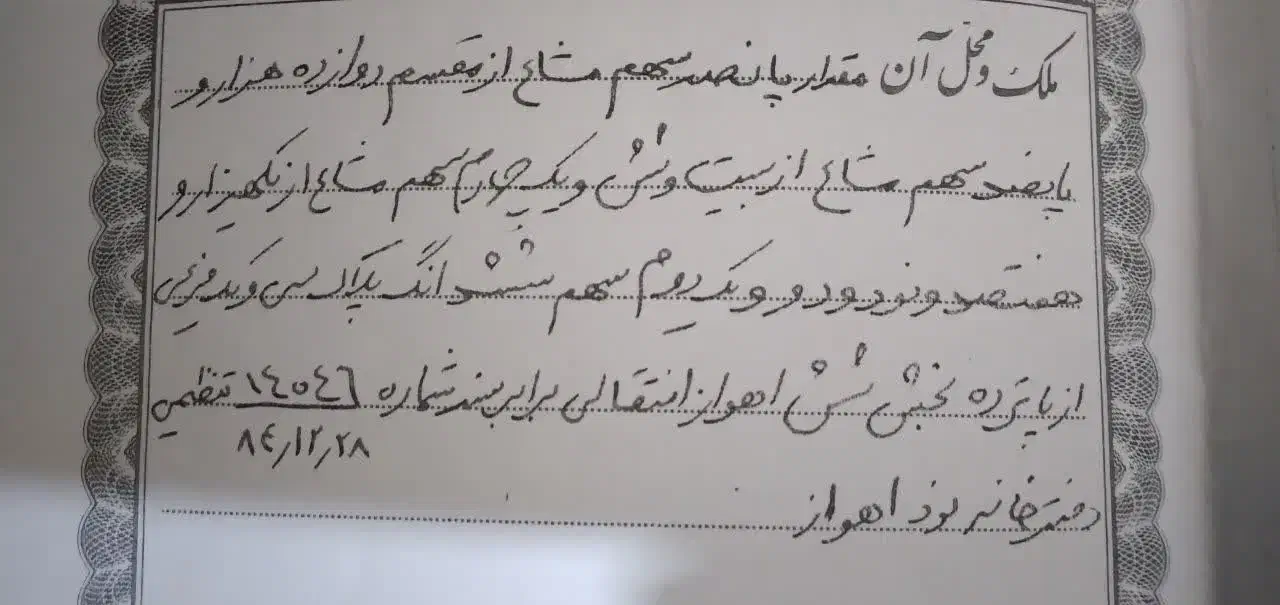 ملک و محل آن مقدار پانصد سهم مشاع از مقسم دوازده هزار و
پانصد سهم مشاع از بیست و شش و یک چهارم سهم مشاع از یکهزار و
هفتصد و نود و دو و یک دوم سهم ششدانگ پلاک سی و یک فرعی
از پانزده بخش شش اهواز انتقالی برابر سند شماره ۱۴۵۴۶ تنظیمی
۸۴٫۱۲٫۲۸
دفترخانه نود اهواز